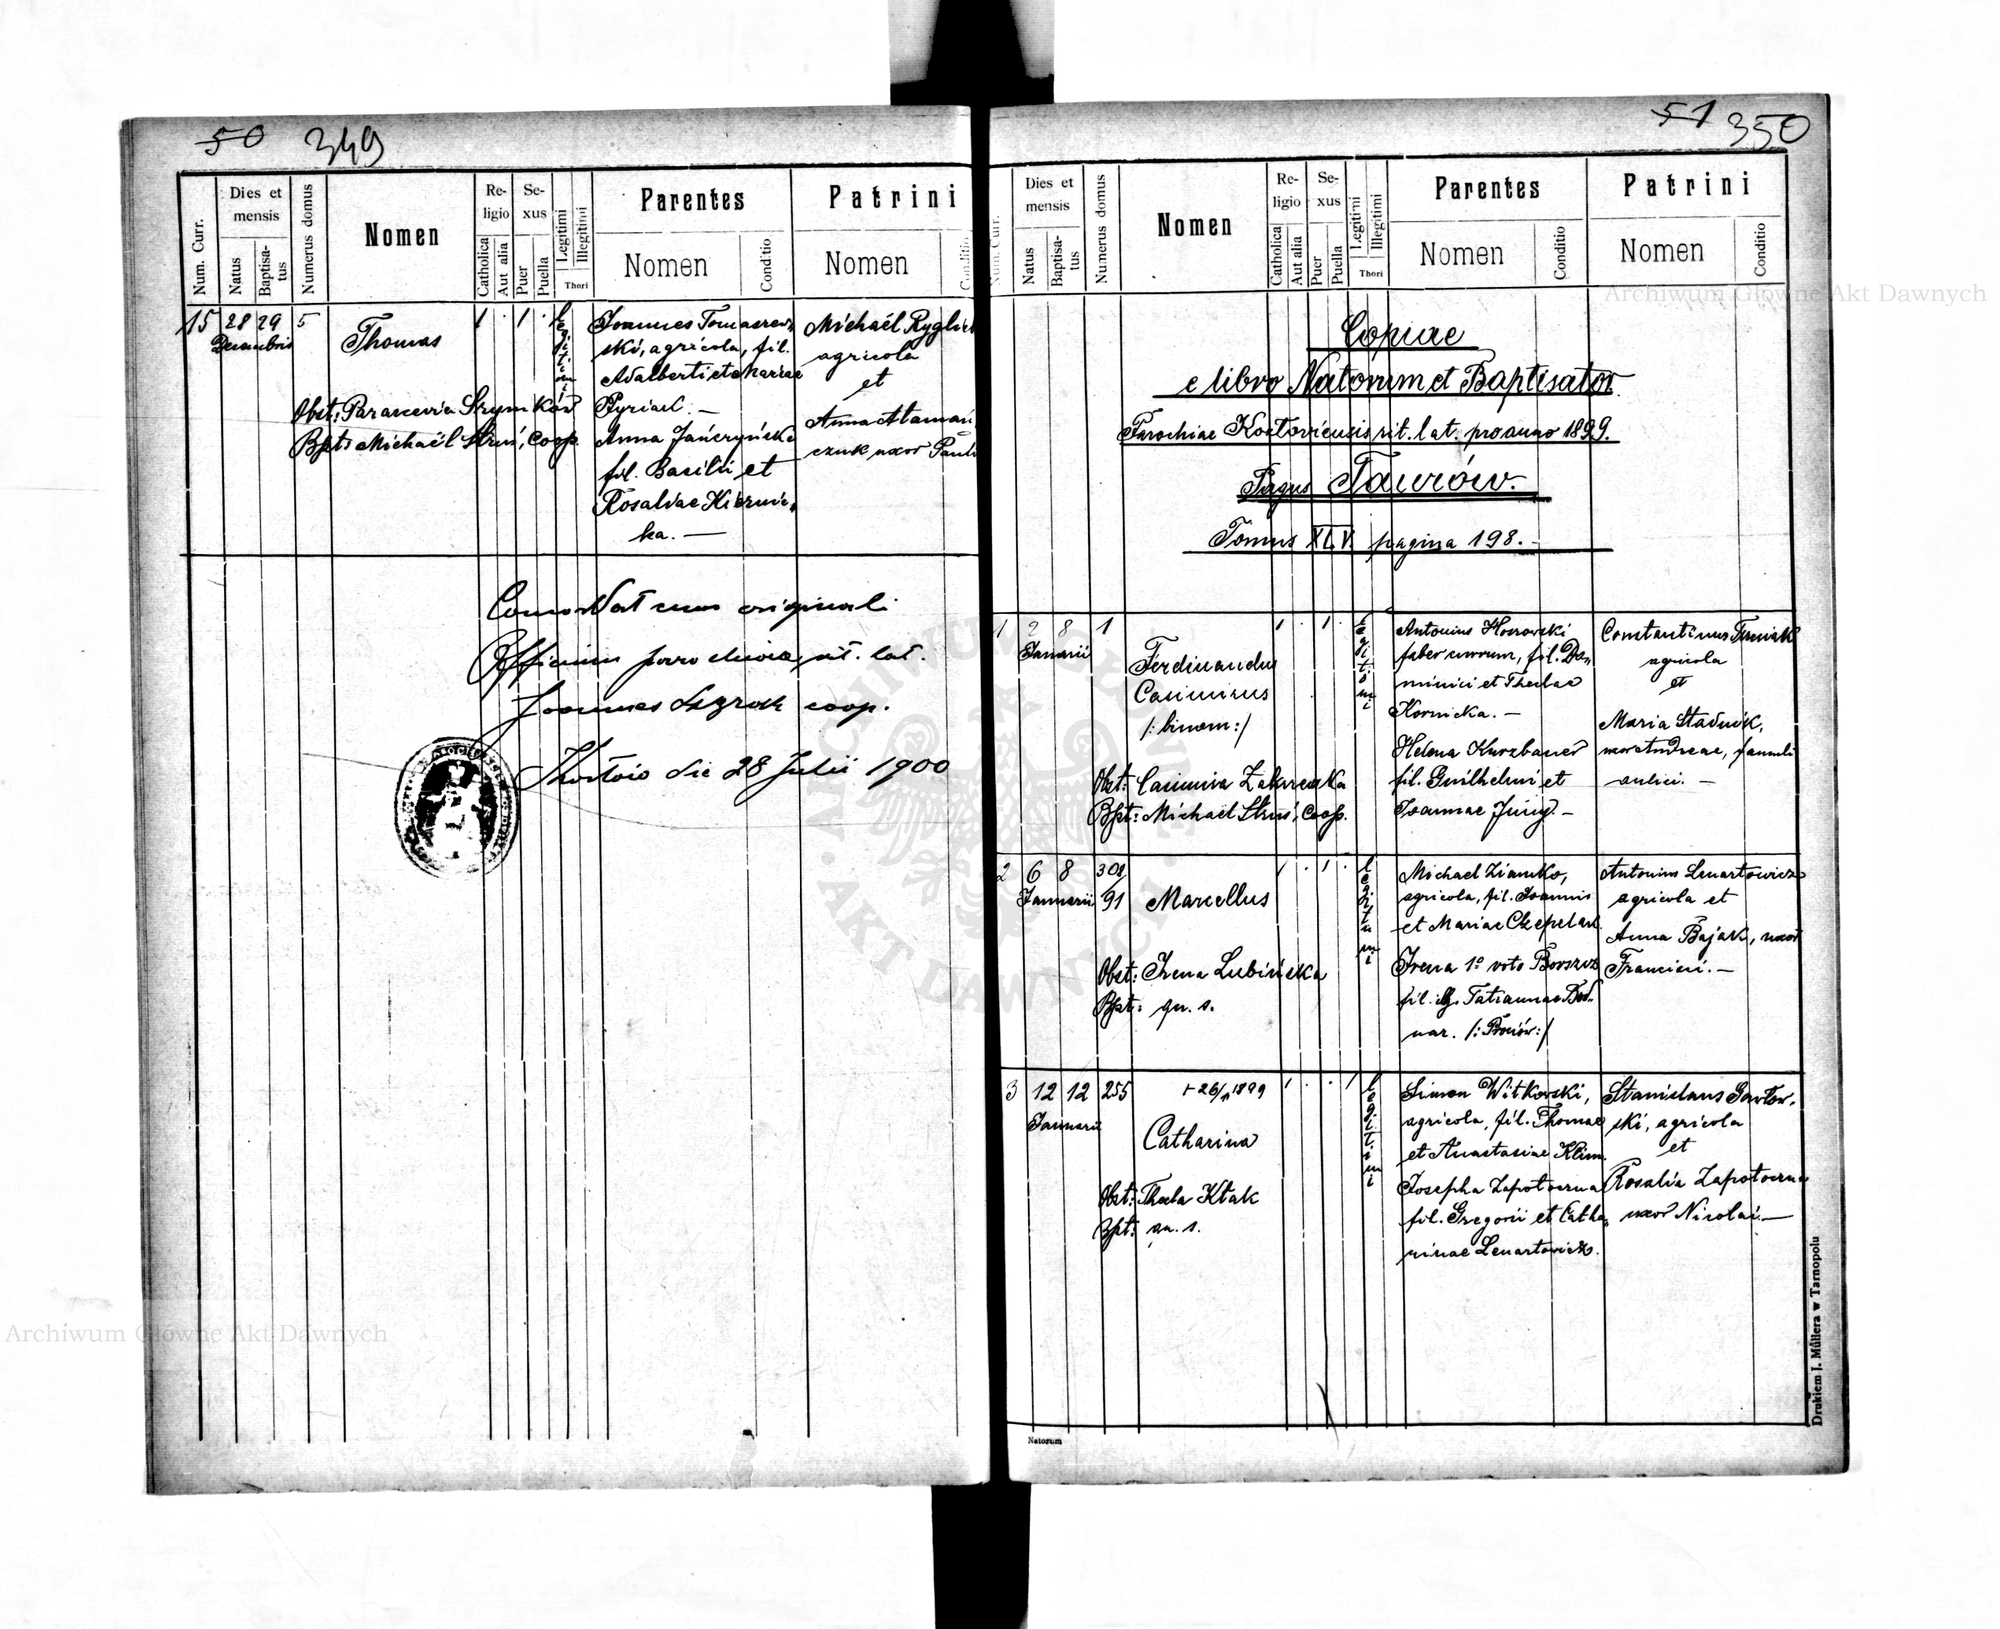 50 349
Num. Curr.
Dies et mensis
Natus
Baptisatus
Numerus domus
Nomen
Religio
Catholica
Aut alia
Sexus
Puer
Puella
Legitimi
Illegitimi
Thori
Parentes
Nomen
Conditio
Patrini
Nomen
15 28 29 5
Decembris
Thomas
1 . 1 .
Legitimi
Joannes Tomaszew
ski, agricola, fil.
Adalberti et Mariae
Pyriad. —
Anna Jańczyńska
fil. Basilii et
Rosaliae Hiernic
ka. —
Michaël
agricola
et
Anna Ataman
czuk uxor Pauli
Obst: Parascevia
Bpt: Michaël Struś, Coop.
Concordat cum originali
Officium parochiale rit. lat.
Joannes coop.
die 28 Julii 1900
51 350
Num. Curr.
Dies et mensis
Natus
Baptisatus
Numerus domus
Nomen
Religio
Catholica
Aut alia
Sexus
Puer
Puella
Legitimi
Illegitimi
Thori
Parentes
Nomen
Conditio
Patrini
Nomen
Conditio
Archiwum Główne Akt Dawnych
Copiae
e libro Natorum et Baptisator
Parochiae rit. lat. pro anno 1899.
Pagus Taurów.
Tomus XLV. pagina 198.
1 2 8 1
Januarii
Ferdinandus
Casimirus
/: binom:/
Obst: Casimira Zakrzewska
Bpt: Michaël Struś, Coop.
1 . 1 .
Legitimi
Antonius
faber murorum, fil. Do
minici et Theclae
Kornicka. —
Helena Kurzbauer
fil. Guilhelmi et
Joannae Jung. —
Constantinus
agricola
et
Maria Stadnik,
uxor Andreae, famuli
aulici. —
2 6 8 308/91
Januarii
Marcellus
Obst: Irena Lubińska
Bpt: qu. s.
1 . 1 .
Legitimi
Michael Ziamko,
agricola, fil. Joannis
et Mariae
Irena 1º voto
fil. Tatiannae Bod
nar.
Antonius Lenartowicz
agricola et
Anna Bajak, uxor
Francisci. —
3 12 12 255
Januarii
+ 26/11 1899
Catharina
Obst: Thecla Kłak
Bpt: qu. s.
1 . . 1
Legitimi
Simon Witkowski,
agricola, fil. Thomae
et Anastasiae Klim.
Josepha Zapotoczna
fil. Gregorii et Catha
rinae Lenartowicz.
Stanislaus Pawłow
ski, agricola
et
Rosalia Zapotoczna
uxor Nicolai. —
Natorum
Drukiem J. Müllera w Tarnopolu
Archiwum Główne Akt Dawnych
ARCHIWUM GŁÓWNE · AKT DAWNYCH ·